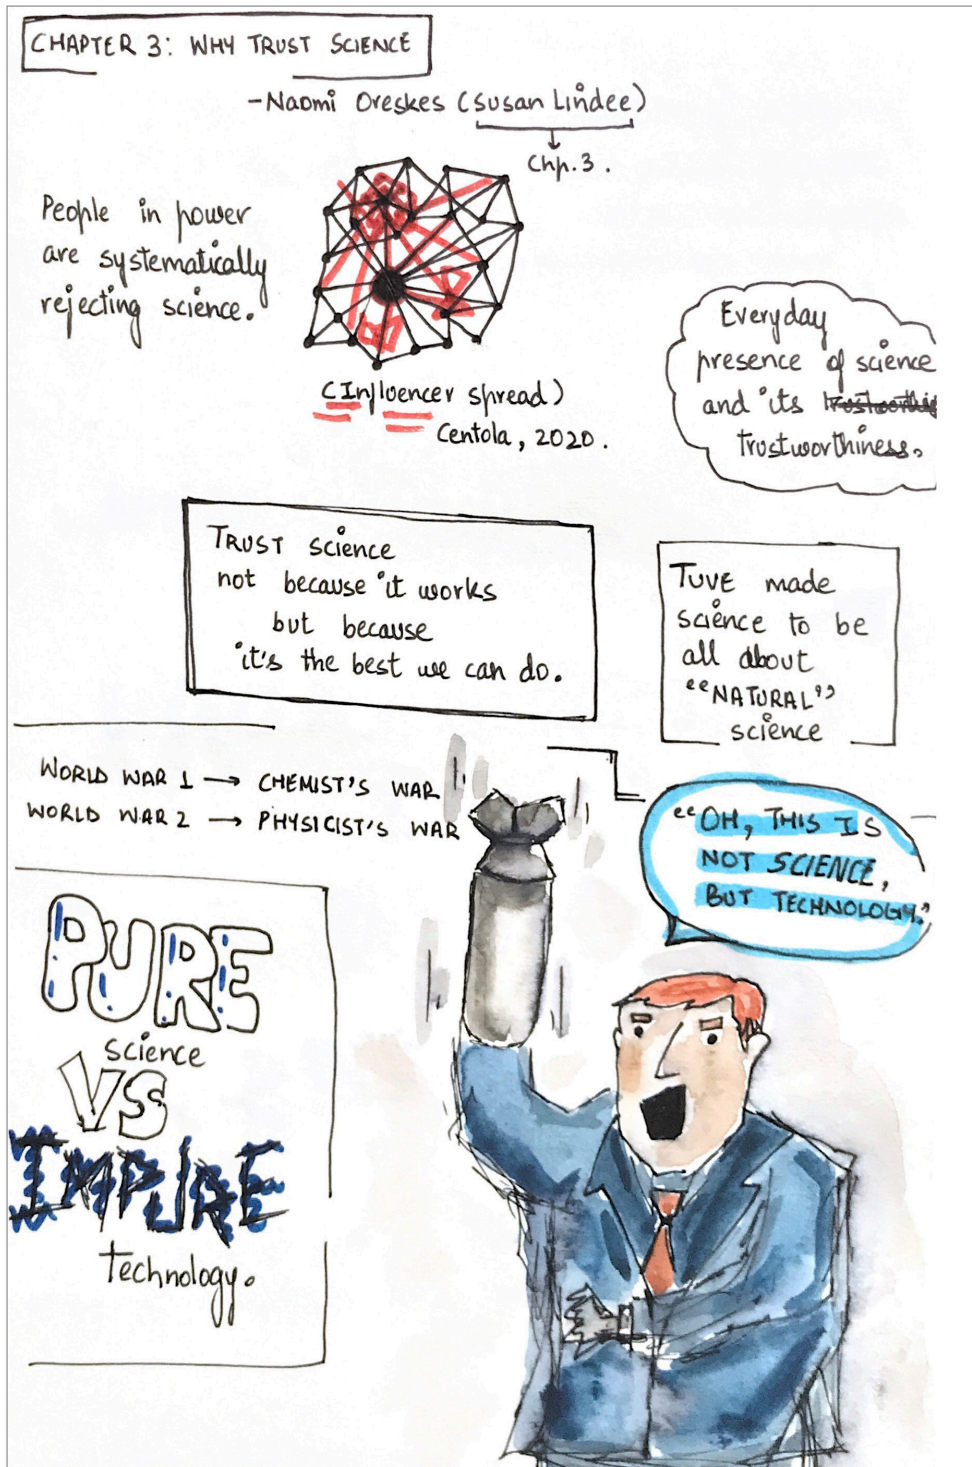 CHAPTER 3: WHY TRUST SCIENCE
-Naomi Oreskes (Susan Lindee)
Chp. 3.
People in power
are systematically
rejecting science.
(Influencer spread)
Centola, 2020.
Everyday
presence of science
and its
trustworthiness.
TRUST science
not because it works
but because
it's the best we can do.
TUVE made
science to be
all about
"NATURAL"
science
WORLD WAR 1 → CHEMIST'S WAR
WORLD WAR 2 → PHYSICIST'S WAR
"OH, THIS IS
NOT SCIENCE,
BUT TECHNOLOGY."
PURE
science
VS
IMPURE
technology.